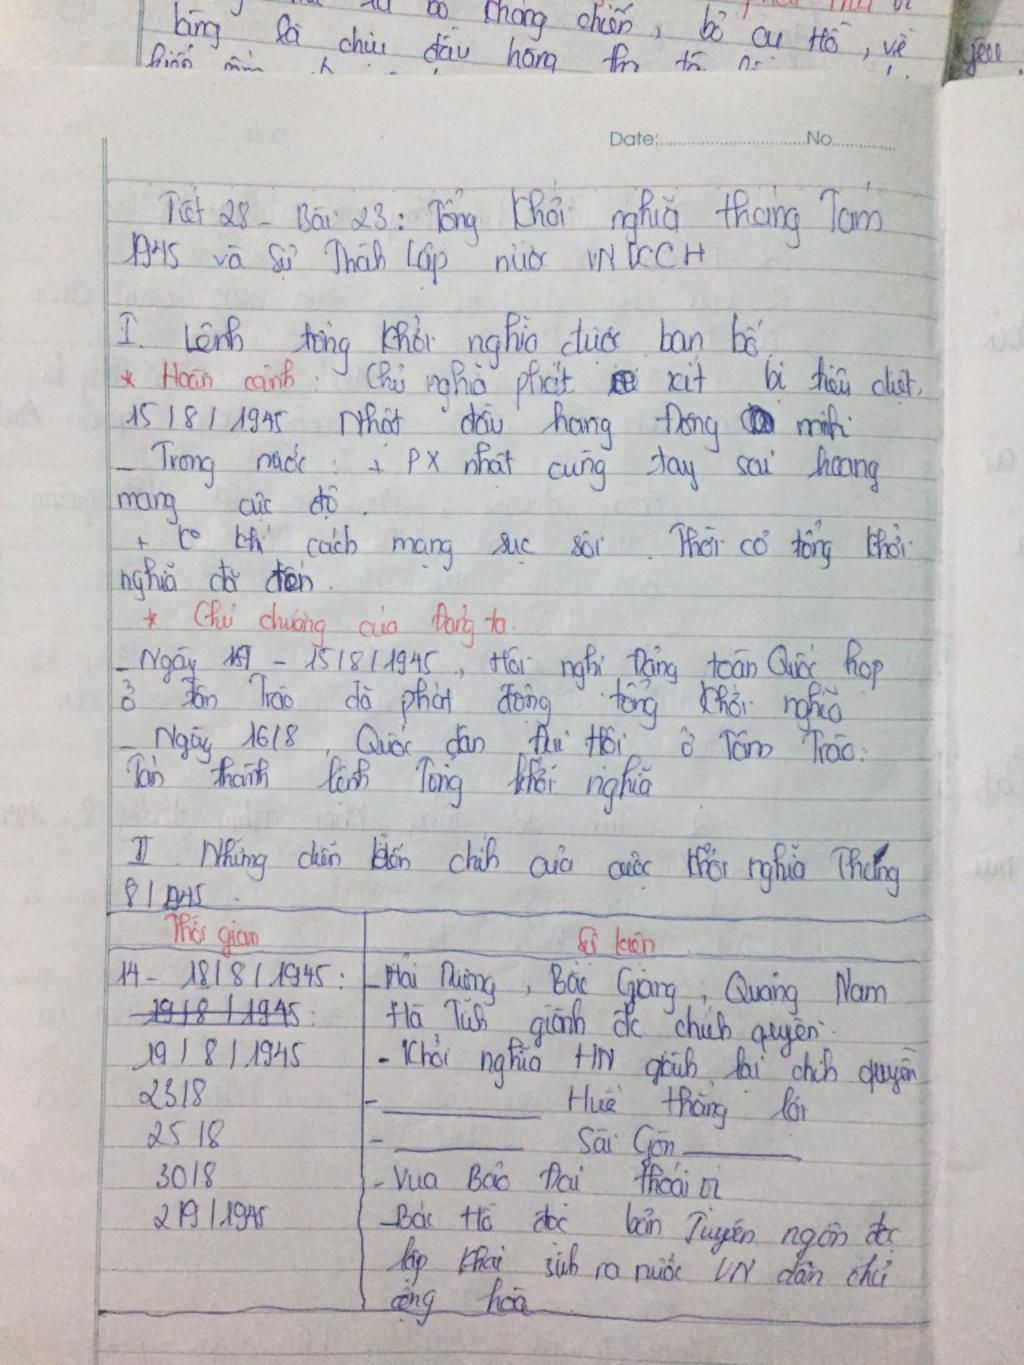 bỏ kháng chiến, bỏ cụ Hồ, về
làng là chịu đầu hàng
yêu
Date: No
Tiết 28 - Bài 23: Tổng khởi nghĩa tháng Tám
1945 và Sự Thành Lập nước VNDCCH
I. Lệnh tổng khởi nghĩa được ban bố
* Hoàn cảnh: Chủ nghĩa phát xít bị tiêu diệt.
15/8/1945 Nhật đầu hàng Đồng minh
- Trong nước: + PX nhật cùng tay sai hoang
mang cực độ.
+ ko khí cách mạng sục sôi. Thời cơ tổng khởi
nghĩa đã đến.
* Chủ chương của Đảng ta.
- Ngày - 15/8/1945, Hội nghị Đảng toàn Quốc họp
ở Tân Trào đã phát động tổng khởi nghĩa
- Ngày 16/8, Quốc dân Đại Hội ở Tâm Trào:
Tán thành lệnh Tổng khởi nghĩa
II. Những diễn biến chính của cuộc khởi nghĩa Tháng
8/1945.
Thời gian Sự kiện
14 - 18/8/1945: - Hải Dương, Bắc Giang, Quảng Nam
19/8/1945: Hà Tĩnh giành đc chính quyền.
19/8/1945 - Khởi nghĩa HN giành lại chính quyền
23/8 - ______ Huế thắng lợi
25/8 - ______ Sài Gòn ______
30/8 - Vua Bảo Đại thoái vị
2/9/1945 - Bác Hồ đọc bản Tuyên ngôn độc
lập khai sinh ra nước VN dân chủ
cộng hòa